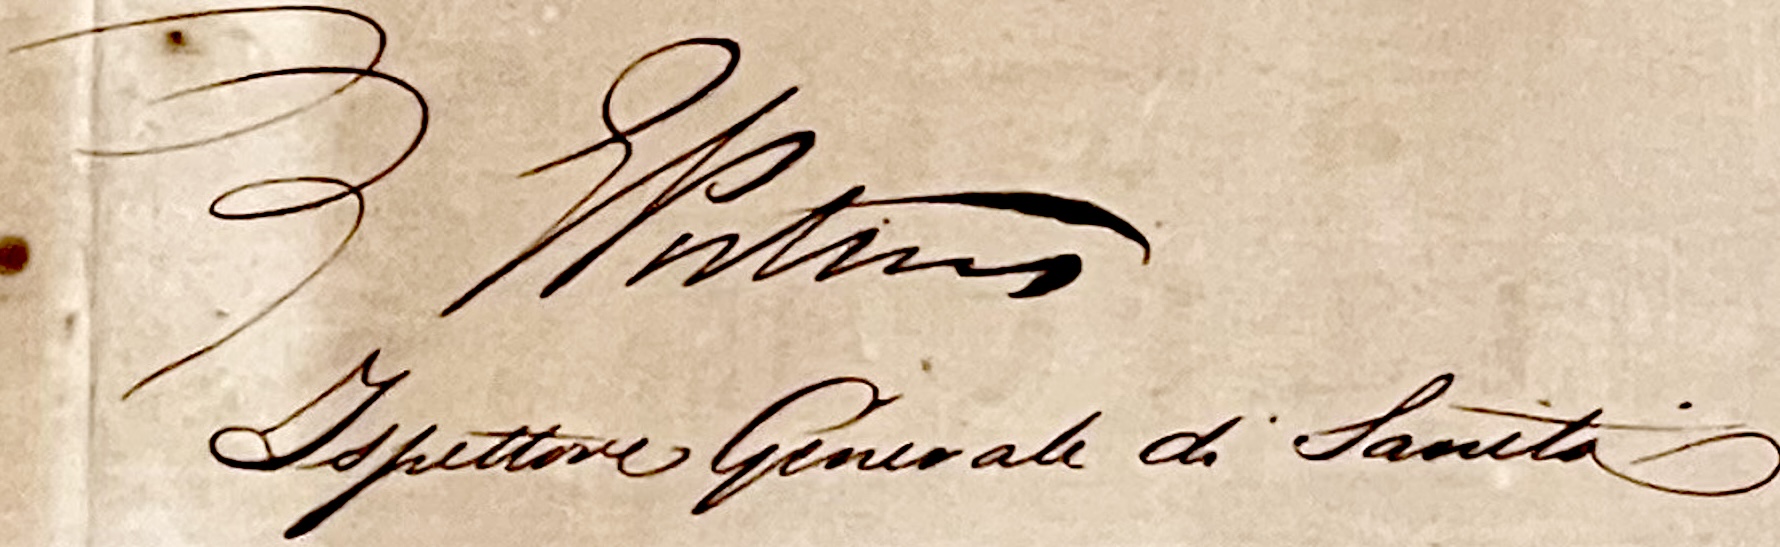 Ispettore Generale di Sanità